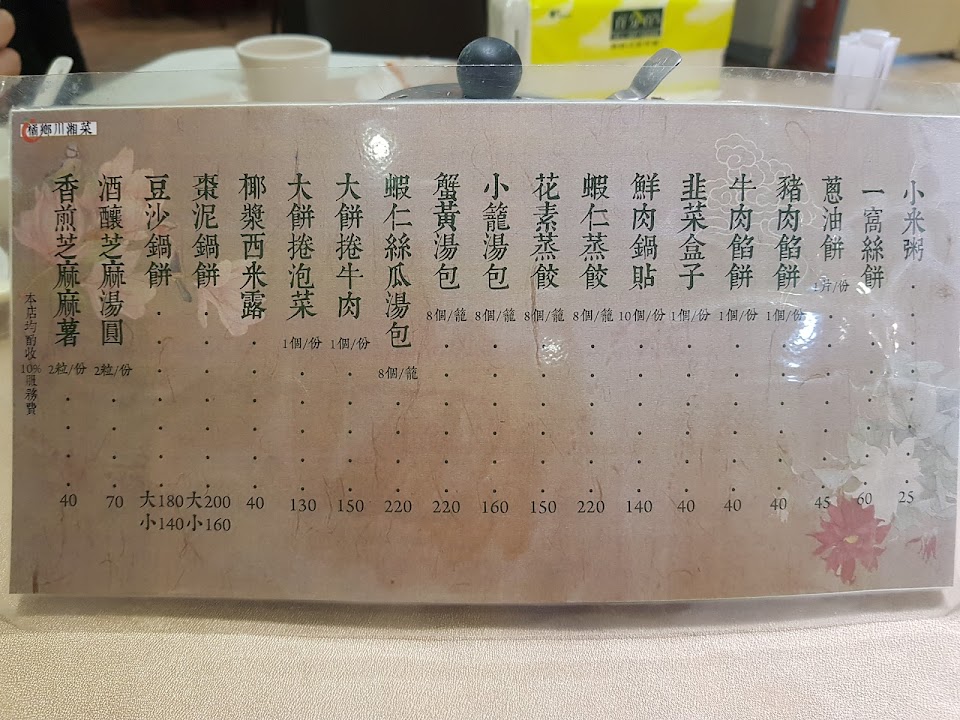 橘鄉川湘菜
小米粥 25
一窩絲餅 60
蔥油餅 1片/份 45
豬肉餡餅 1個/份 40
牛肉餡餅 1個/份 40
韭菜盒子 1個/份 40
鮮肉鍋貼 10個/份 140
蝦仁蒸餃 8個/籠 220
花素蒸餃 8個/籠 150
小籠湯包 8個/籠 160
蟹黃湯包 8個/籠 220
蝦仁絲瓜湯包 8個/籠 220
大餅捲牛肉 1個/份 150
大餅捲泡菜 1個/份 130
椰漿西米露 40
棗泥鍋餅 大200 小160
豆沙鍋餅 大180 小140
酒釀芝麻湯圓 2粒/份 70
香煎芝麻麻薯 2粒/份 40
本店均酌收10%服務費